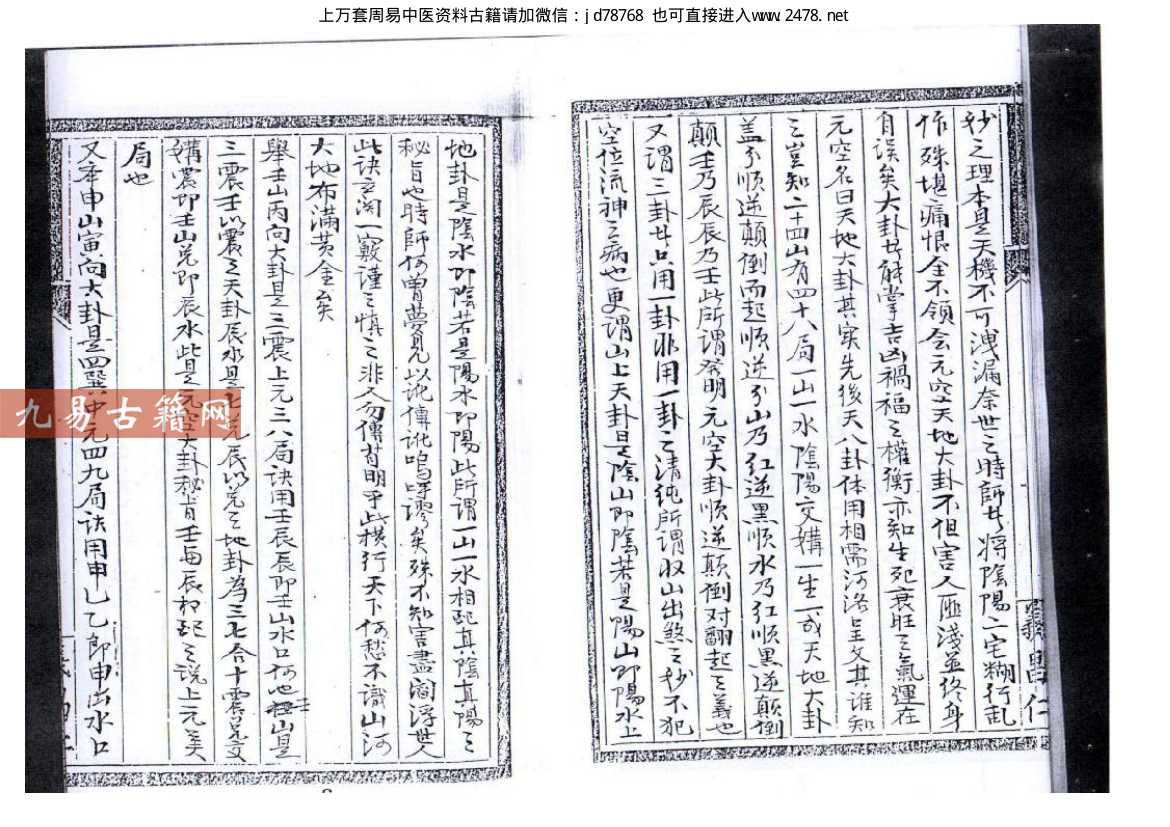 上万套周易中医资料古籍请加微信：jd78768 也可直接进入www.2478.net
妙之理本是天機不可洩漏奈世之時師將陰陽二宅糊行乱
作殊堪痛恨全不領会元空天地大卦不但害人匪淺並終身
自误矣大卦能掌吉凶禍福之權衡亦知生死衰旺之氣運在
元空名曰天地大卦其实先後天八卦体用相需河洛呈文其谁知
之豈知二十四山有四十八局一山一水陰陽交媾一生一成天地大卦
盖分順逆顛倒而起順逆分山乃红逆黑順水乃红順黑逆顛倒
顛壬乃辰辰乃壬此所谓發明元空大卦順逆顛倒对翻起之義也
又谓三卦只用一卦非用一卦之清純所谓收山出煞之妙不犯
空位流神之病也更谓山上天卦是陰山即陰若是陽山即陽水上
地卦是陰水即陰若是陽水即陽此所谓一山一水相配真陰真陽之
秘旨也時師何曽夢見以讹傳讹嗚呼谬矣殊不知害盡閻浮世人
此诀玄関一竅谨之慎之非人勿傳苟明乎此横行天下何愁不識山河
大地布满黄金矣
舉壬山丙向大卦是三震上元三八局诀用壬辰辰即壬山水口何也山是
三震壬以震之天卦辰水是七兑辰以兑之地卦為三七合十震兑交
媾震即壬山兑即辰水此是元空大卦秘旨壬与辰相配之说上元美
局也
又本申山寅向大卦是四巽中元四九局诀用申乙乙即申出水口
九易古籍网